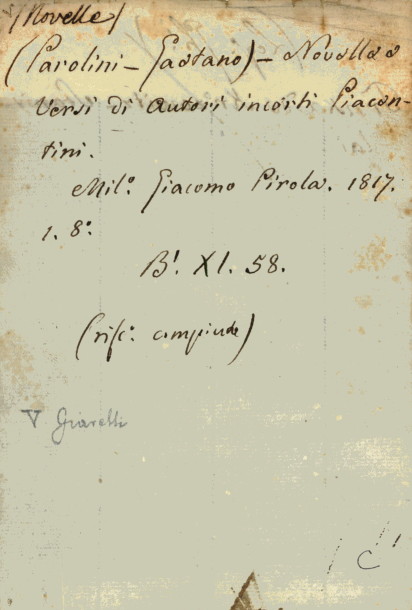 (Novelle)
(Parolini - Gaetano) - Novelle e
versi di autori incerti Piacen-
tini.
Mil.º Giacomo Pirola. 1817.
1. 8.º
B!. XI. 58.
(rifc.º compiude)
V Giarelli
C!